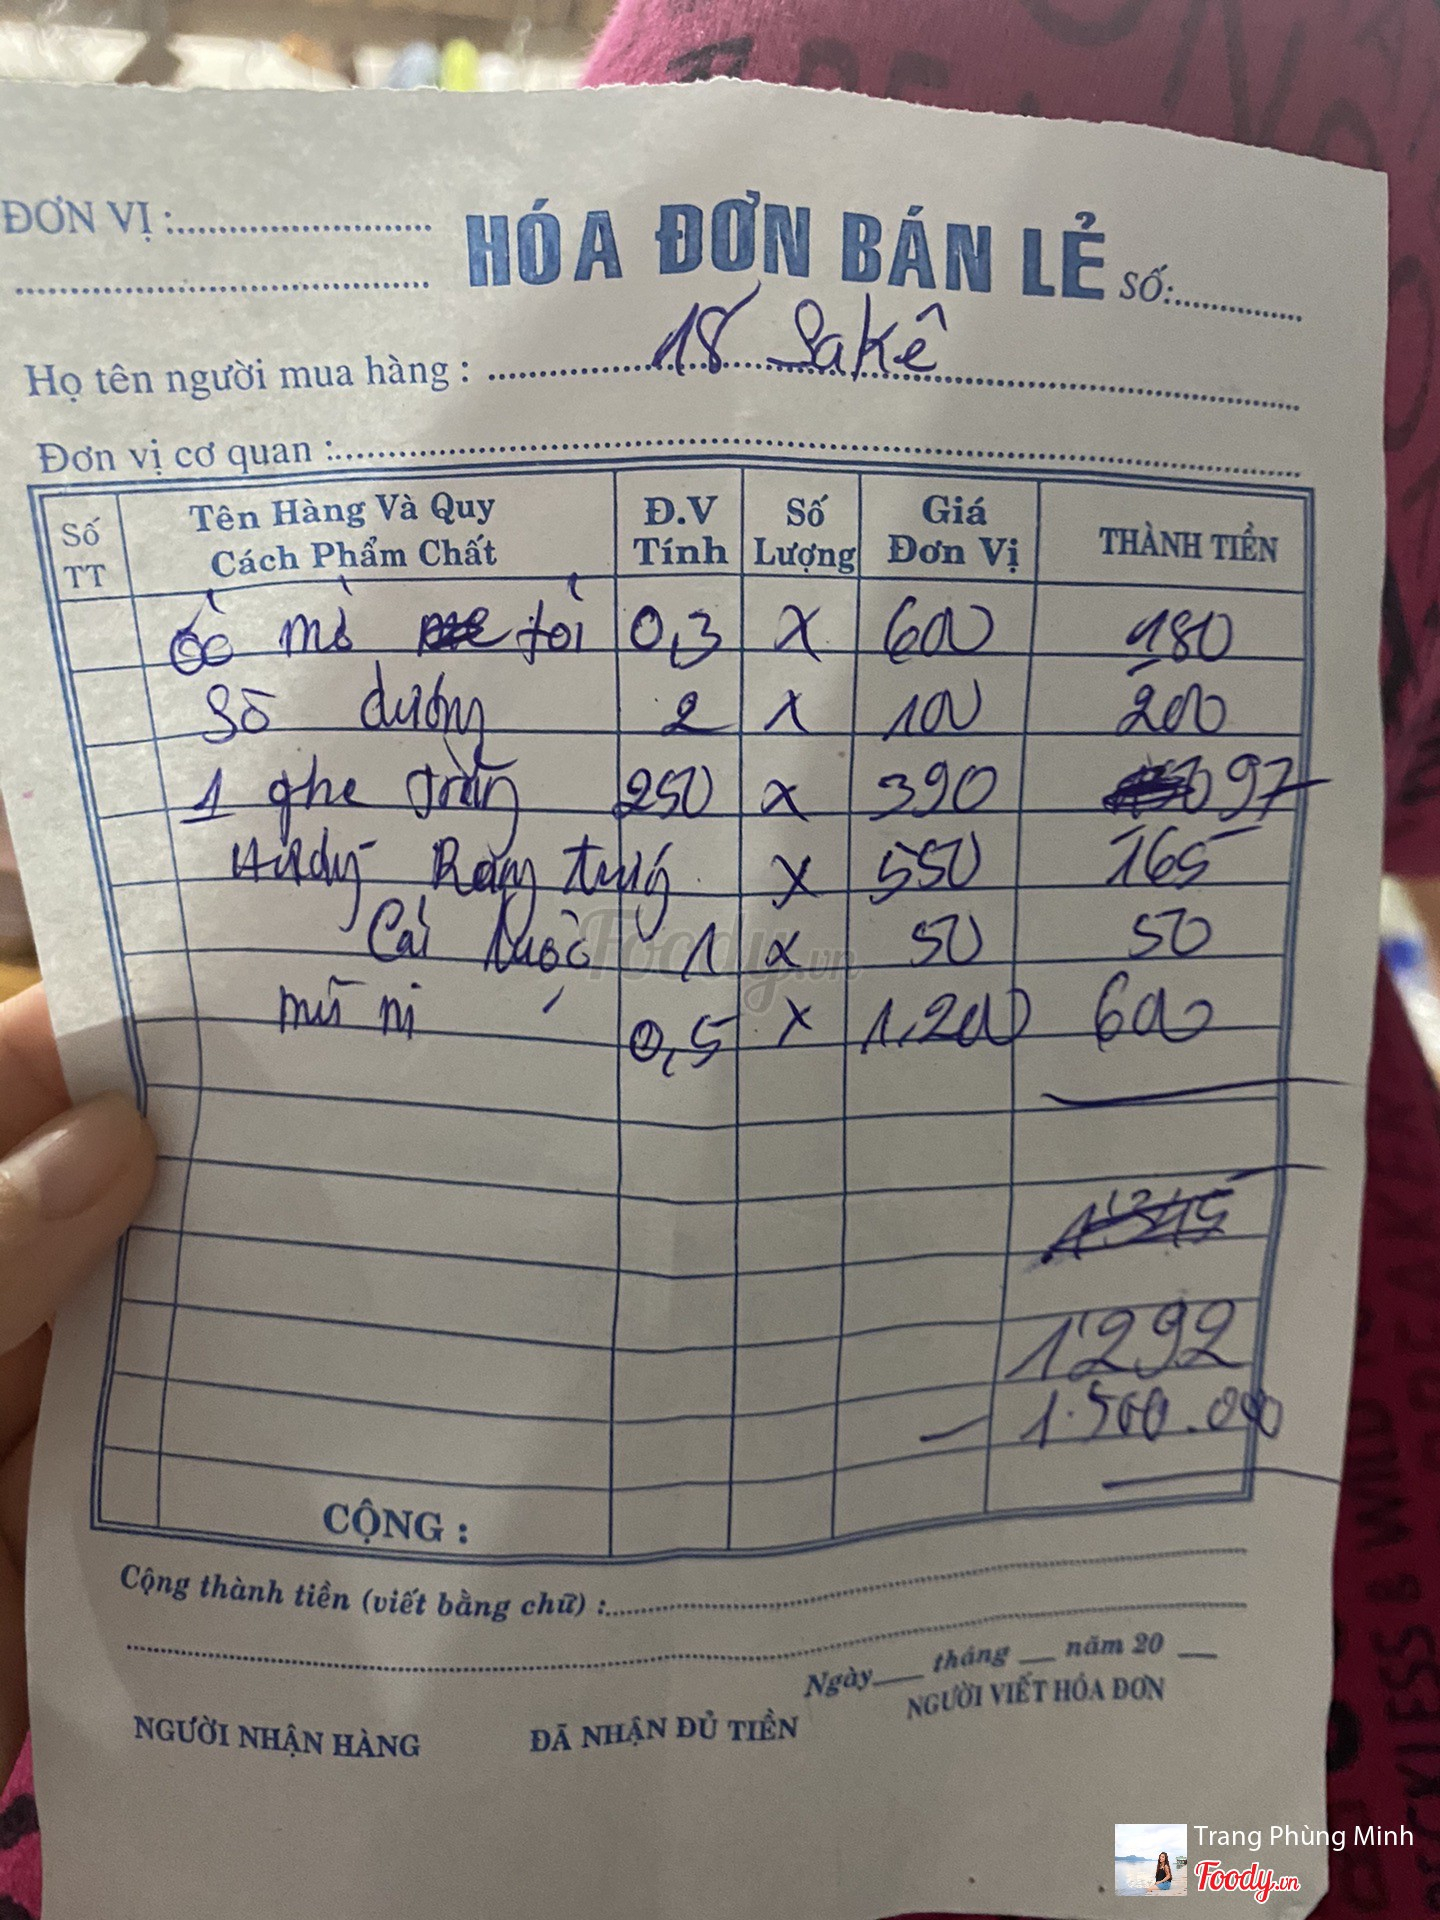 ĐƠN VỊ :
HÓA ĐƠN BÁN LẺ SỐ:
Họ tên người mua hàng : 18 Sakê
Đơn vị cơ quan :
Số TT Tên Hàng Và Quy Cách Phẩm Chất Đ.V Tính Số Lượng Giá Đơn Vị THÀNH TIỀN
ốc mỏ tỏi 0,3 x 600 180
Sò dương 2 x 100 200
1 ghe trắng 250 x 390 97
Rang x 550 165
Cải 1 x 50 50
mũ ni 0,5 x 1.200 600
1.345
1292
1.500.000
CỘNG :
Cộng thành tiền (viết bằng chữ) :
Ngày tháng năm 20
NGƯỜI NHẬN HÀNG ĐÃ NHẬN ĐỦ TIỀN NGƯỜI VIẾT HÓA ĐƠN
Foody.vn
Trang Phùng Minh
Foody.vn